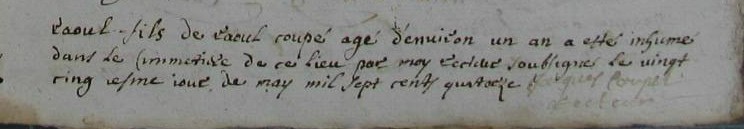 raoul fils de raoul coupé agé d'enuiron un an a esté inhumé
dans le Cimmetiere de ce lieu par moy recteur soubsigné le vingt
cinq iesme iour de may mil sept cents quatorze Jacques Coupé
recteur